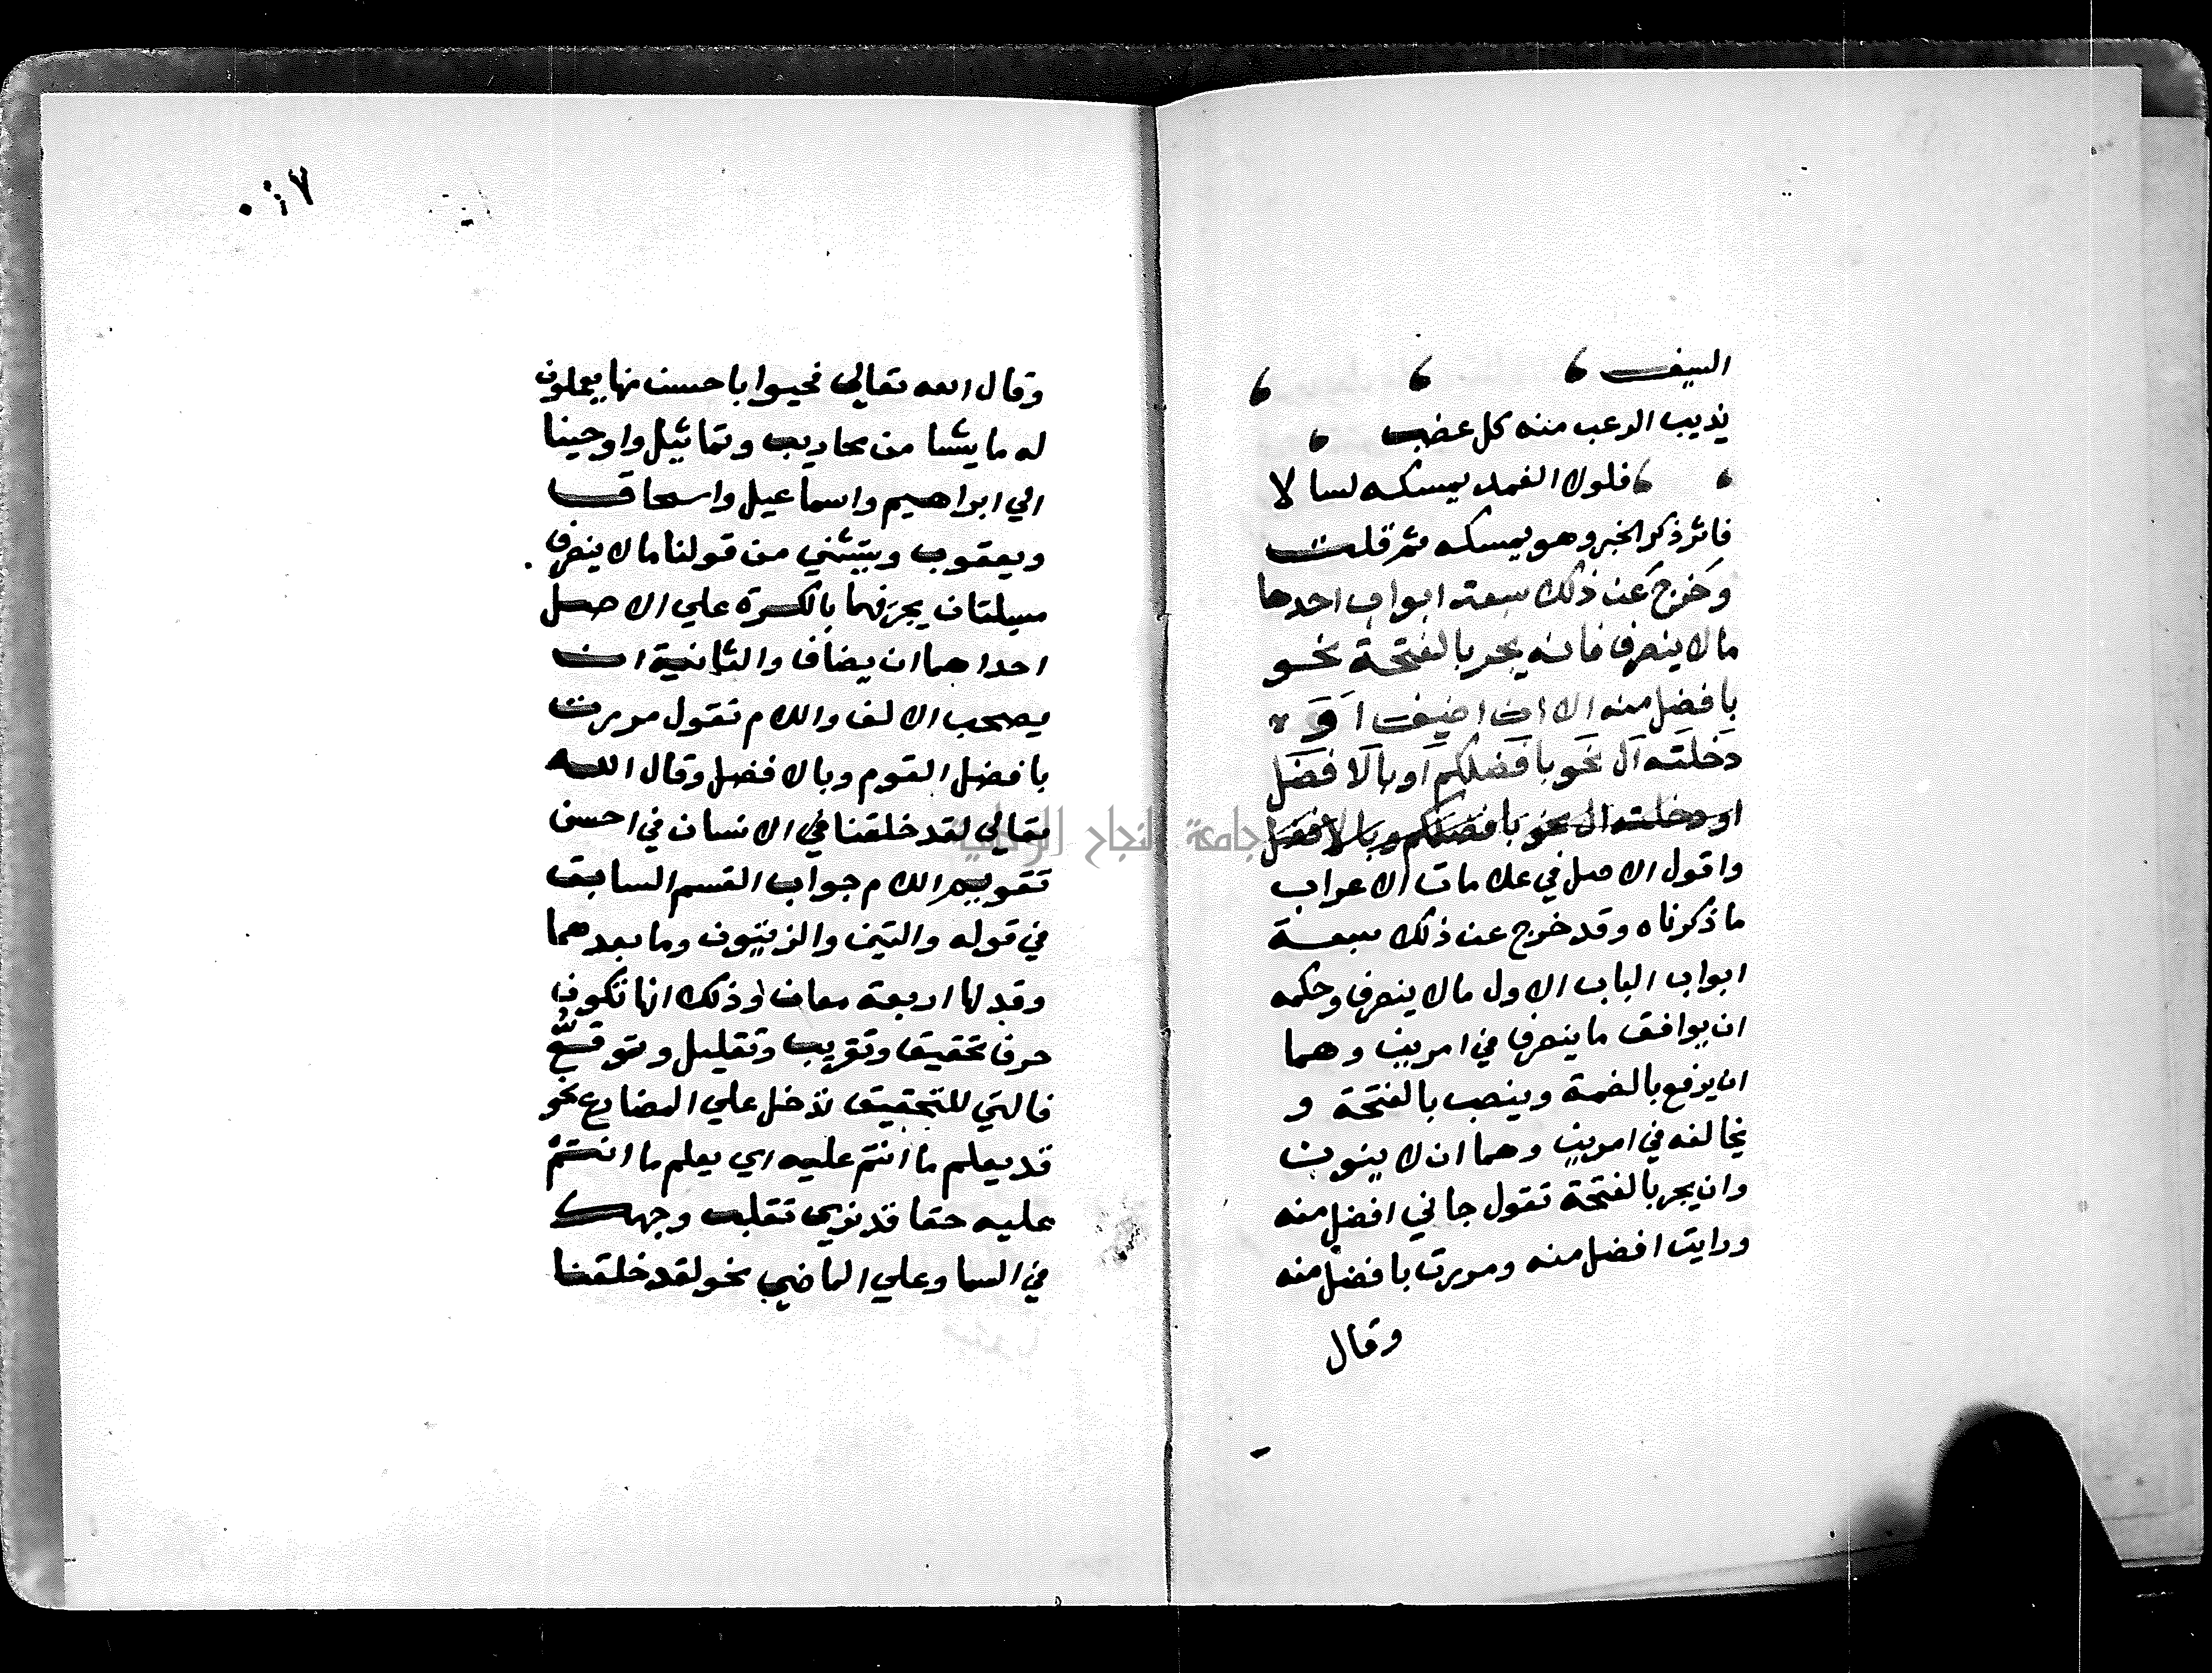 السيف
يذيب الرعب منه كل عضب
فلولا الغمد يمسكه لسالا
فاثر ذكر الخبر وهو يمسكه ثم قلت
وخرج عن ذلك سبعة ابواب احدها
ما لا ينصرف فانه يجر بالفتحة نحو
بافضل منه الا ان اضيف او
دخلته ال نحو بافضلكم او بالافضل
او دخلته ال نحو بافضلكم وبالافضل
واقول الاصل في علامات الاعراب
ما ذكرناه وقد خرج عن ذلك سبعة
ابواب الباب الاول ما لا ينصرف وحكمه
ان يوافق ما ينصرف في امرين وهما
ان يرفع بالضمة وينصب بالفتحة و
يخالفه في امرين وهما ان لا ينون
وان يجر بالفتحة تقول جاني افضل منه
ورايت افضل منه ومررت بافضل منه
وقال
٧
وقال الله تعالي فحيوا باحسن منها يعملون
له ما يشا من محاريب وتماثيل واوحينا
الي ابراهيم واسماعيل واسحاق
ويعقوب ويستثني من قولنا ما لا ينصرف
مسيلتان يجر فيهما بالكسرة علي الاصل
احداهما ان يضاف والثانية ان
يصحب الالف واللام تقول مررت
بافضل القوم وبالافضل وقال الله
تعالي لقد خلقنا في الانسان في احسن
تقويم اللام جواب القسم السابق
في قوله والتين والزيتون وما بعدهما
وقد لها اربعة معان وذلك انها تكون
حرف تحقيق وتقريب وتقليل وتوقع
فالتي للتحقيق تدخل علي المضارع نحو
قد يعلم ما انتم عليه اي يعلم ما انتم
عليه حقا قد نري تقلب وجهك
في السما وعلي الماضي نحو لقد خلقنا
جامعة النجاح الوطنية